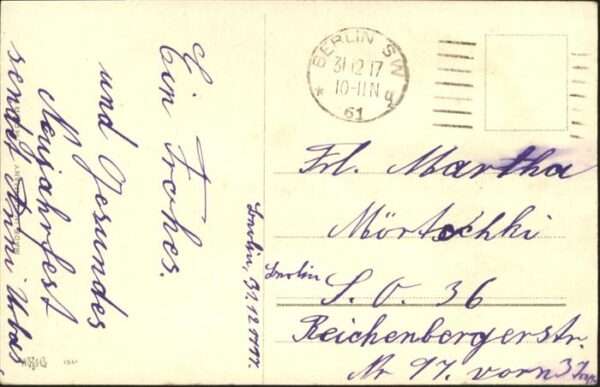 Ein Frohes.
und Gesundes
Neujahrfest
sendet Anni
Berlin, 31.12.1917.
BERLIN SW
31.12.17
10-11 N
* 61 q
Frl. Martha
Mörtschki
Berlin
S. O. 36
Reichenbergerstr.
Nr 97. vorn 3